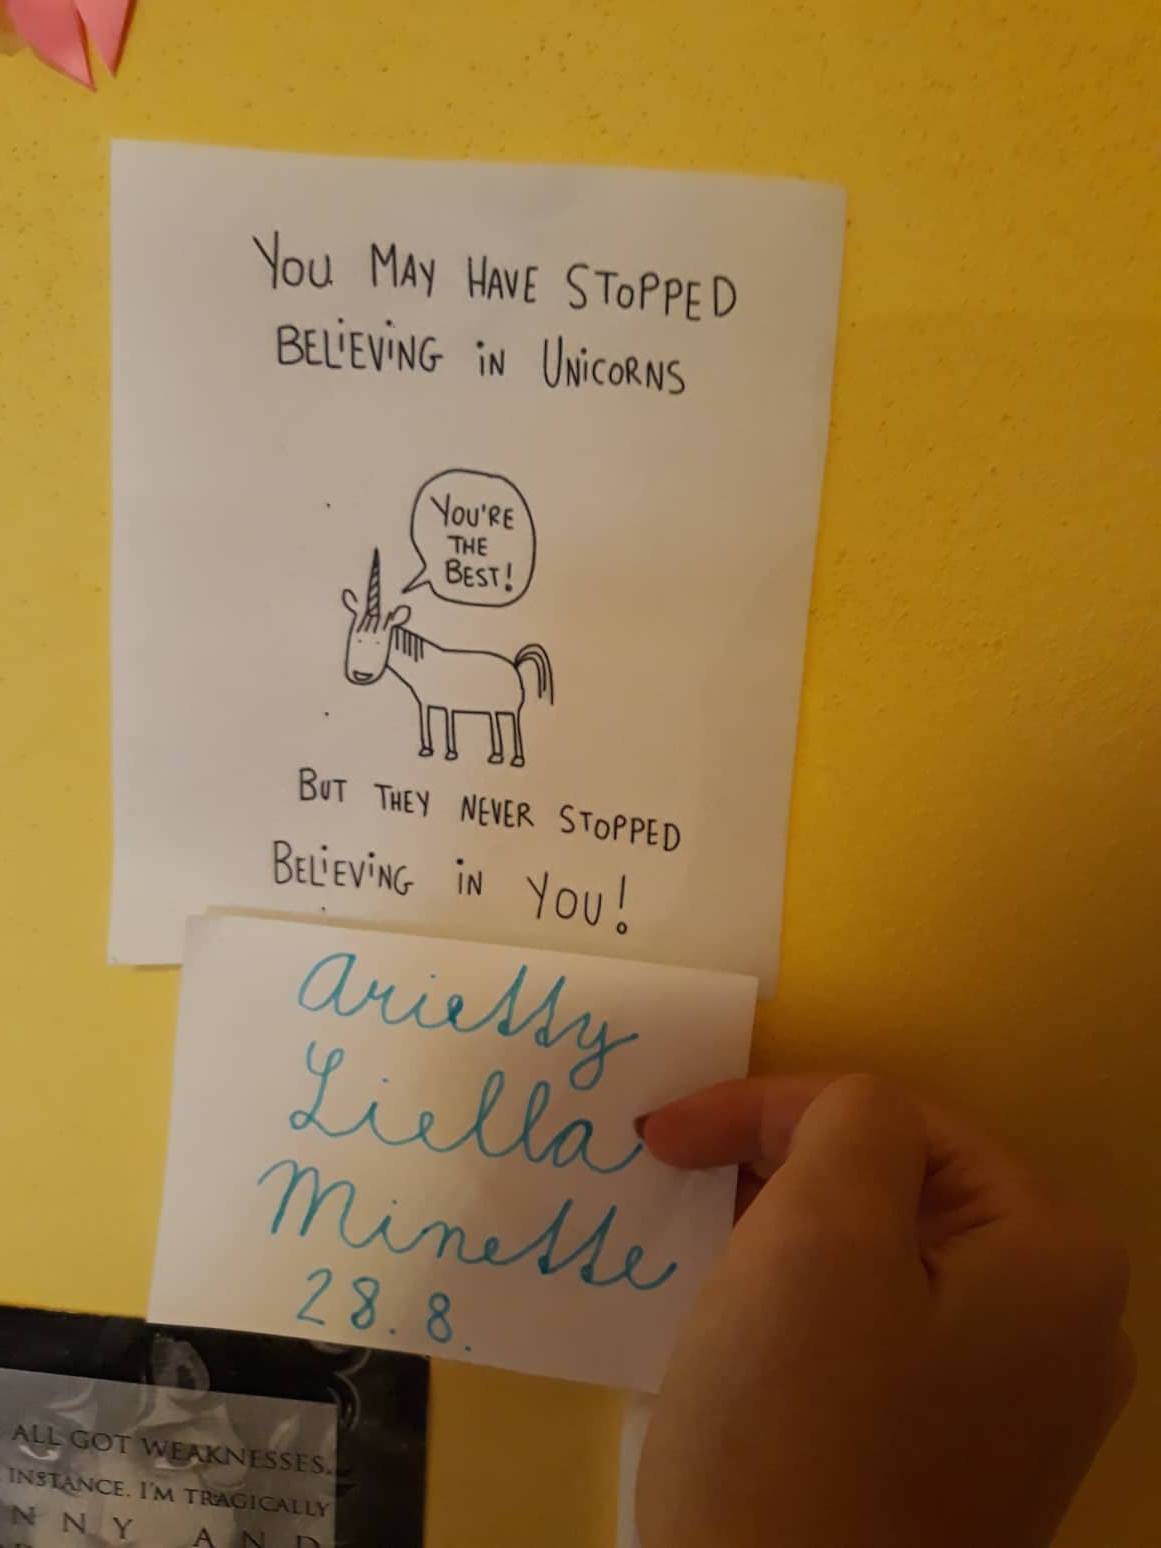 You MAY HAVE STOPPED
BELIEVING iN UNiCORNS
YOU'RE
THE
BEST!
BUT THEY NEVER STOPPED
BELIEVING iN YOU!
Arietty
Liella
Minette
28.8.
ALL GOT WEAKNESSES.
INSTANCE. I'M TRAGICALLY
NNY AND